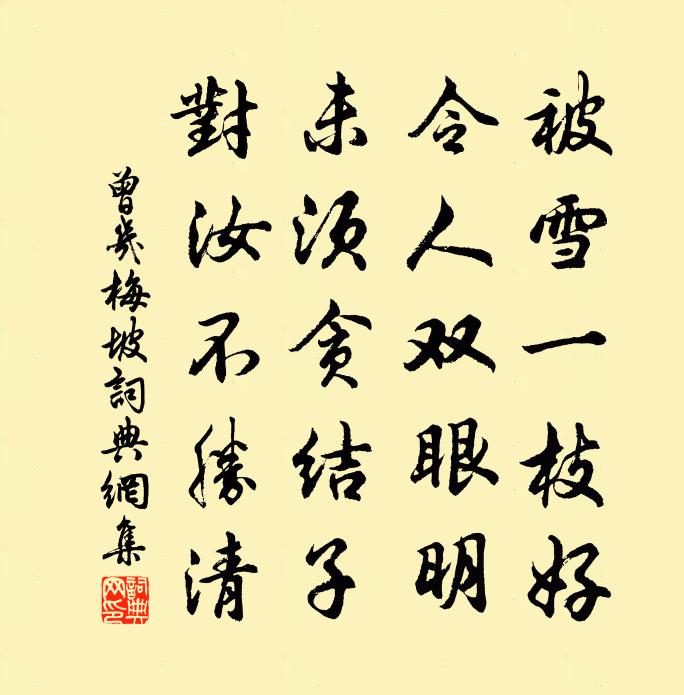 被雪一枝好
令人双眼明
未须贪结子
對汝不勝清
曾幾梅坡詞典網集
詞典网印